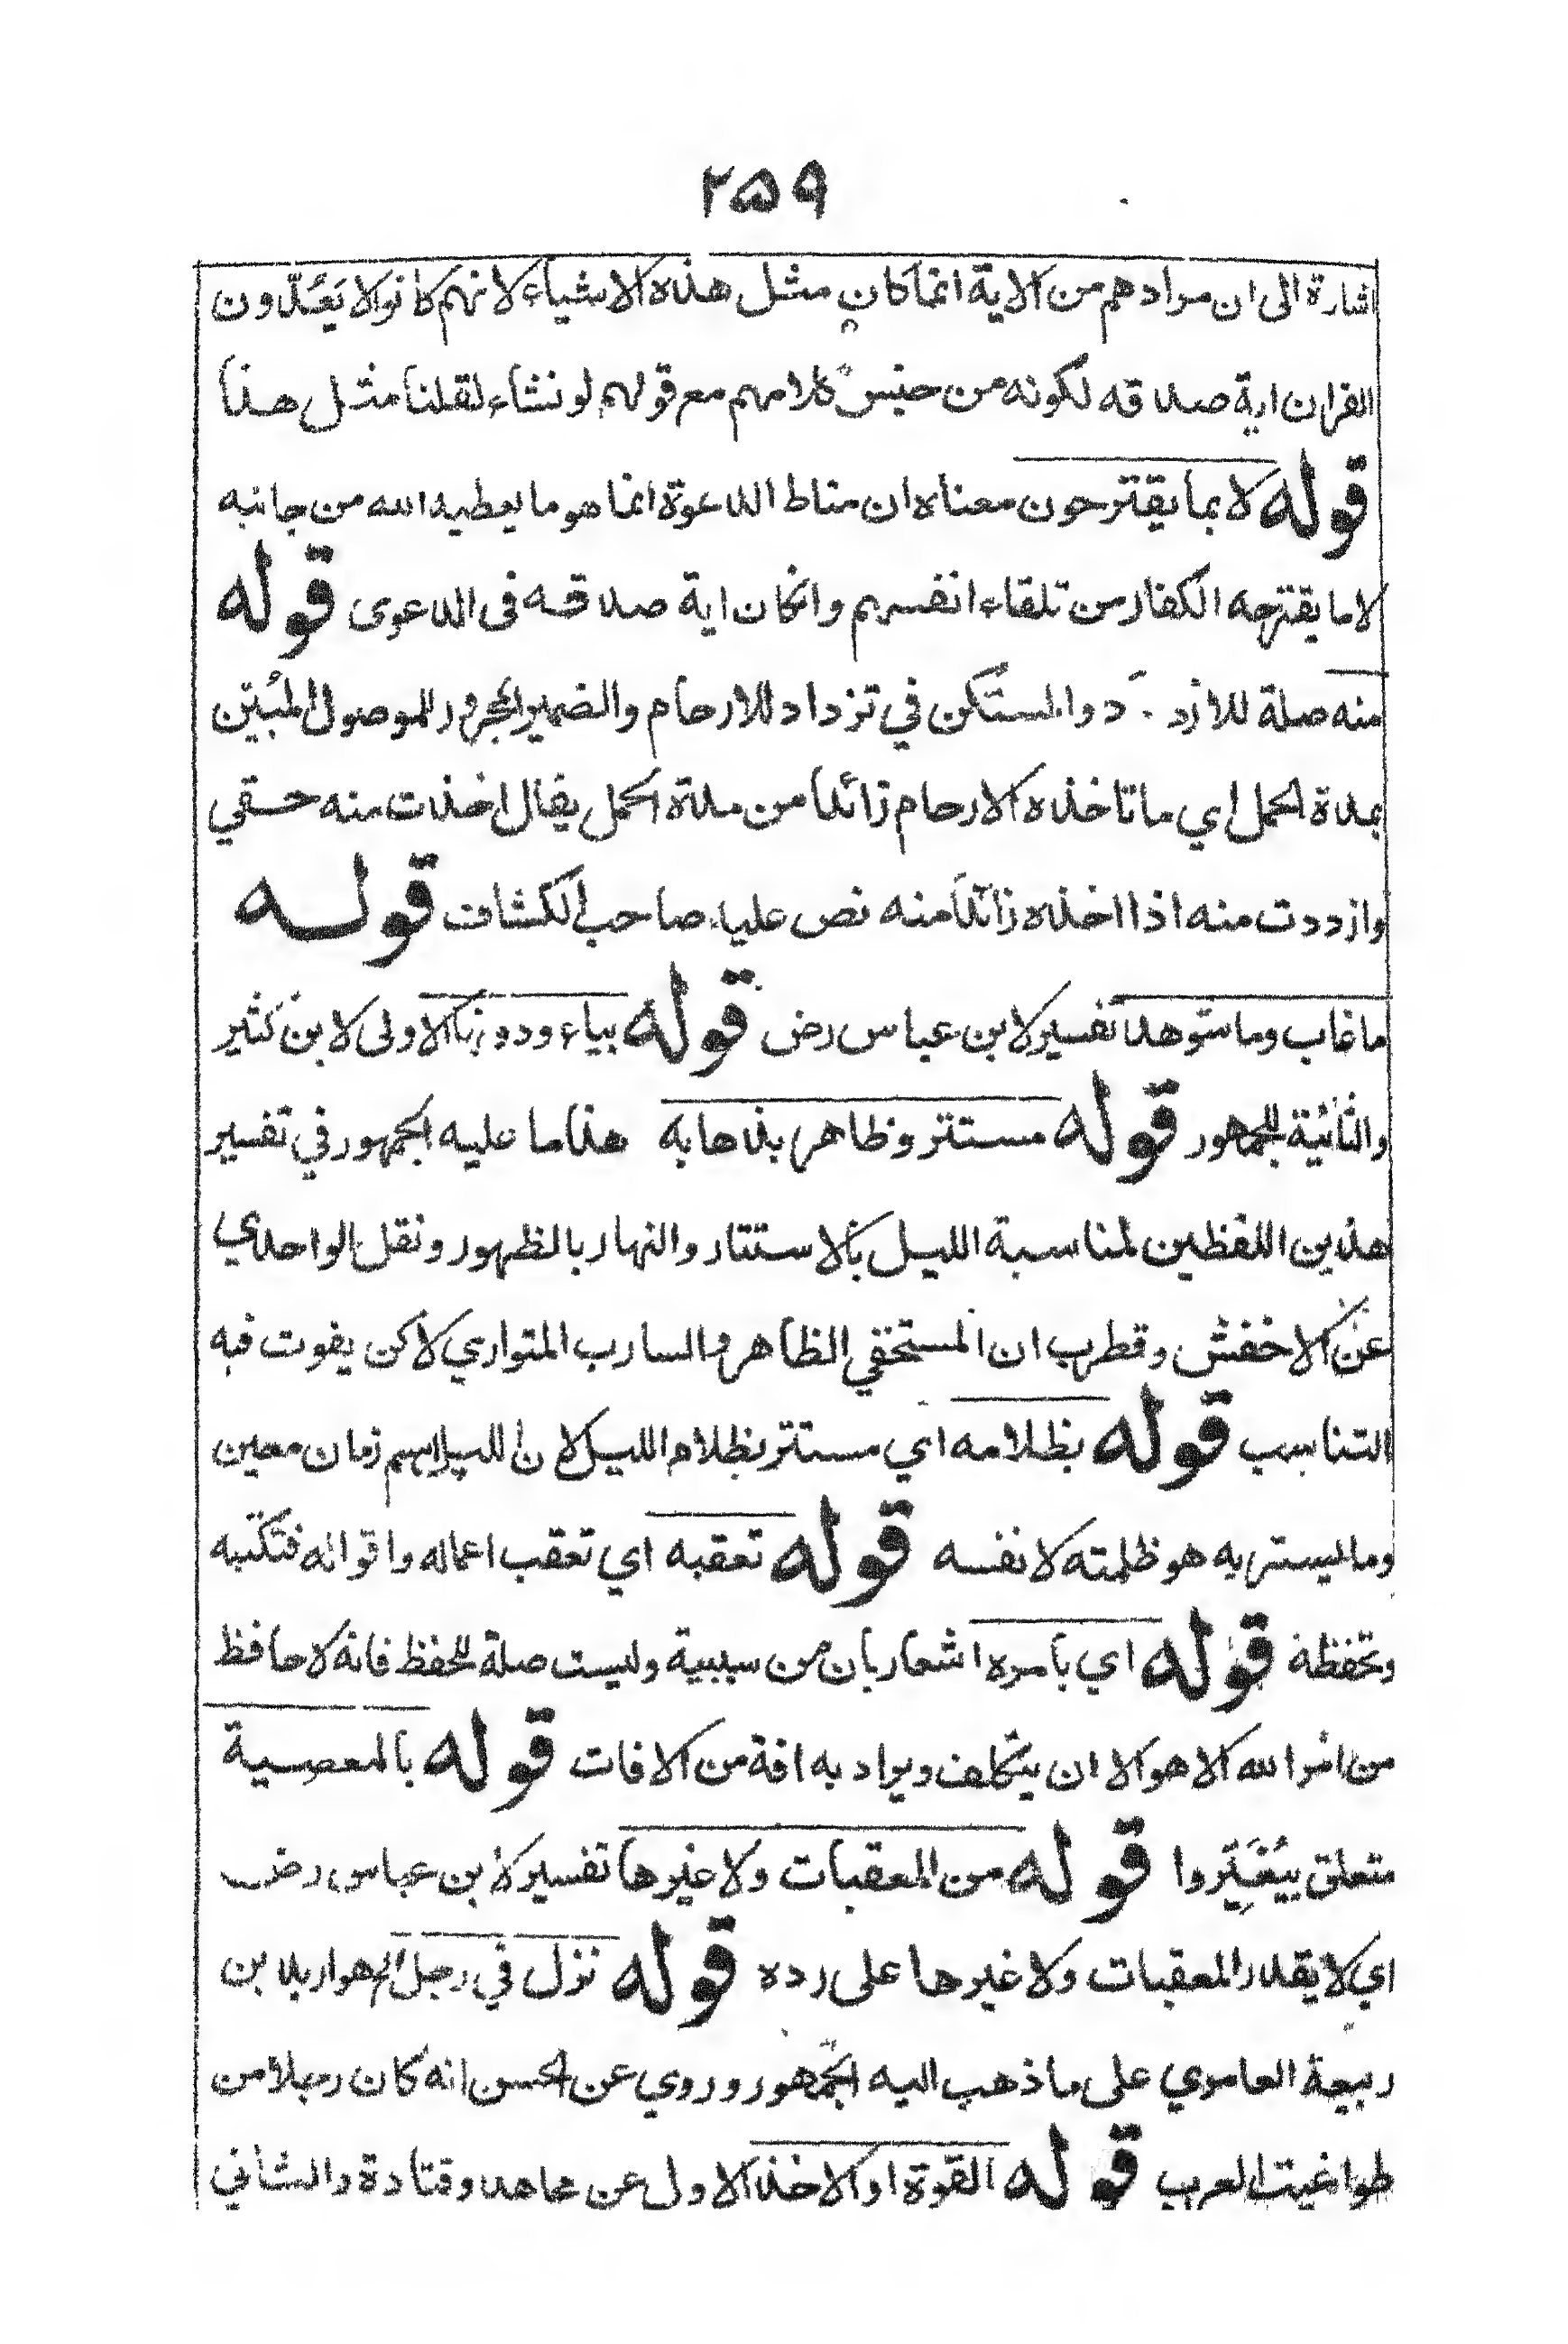 ۲۵۹
اشارة الى ان مرادهم من الاية انما كان مثل هذه الاشياء لانهم كانوا لا يَعُدّون
القران اية صدقه لكونه من جنس كلامهم مع قولهم لو نشاء لقلنا مثل هذا
قوله لا بما يقترحون معناه ان مناط الدعوة انما هو ما يعطيه الله من جانبه
لا ما يقترحه الكفار من تلقاء انفسهم وانكان اية صدقه فى الدعوى قوله
منه صلة للازد د والمستكن في تزداد للارحام والضمير المجرور للموصول المبيّن
بمدة الحمل اي ما تاخذه الارحام زائدا من مدة الحمل يقال اخذت منه حقي
وازددت منه اذا اخذه زائدا منه نص عليه صاحب الكشاف قوله
ما غاب وما شوهد تفسير لابن عباس رض قوله بياء ودونها الاولى لابن كثير
والثانية للجمهور قوله مستتر وظاهر بذهابه هذا ما عليه الجمهور في تفسير
هذين اللفظين لمناسبة الليل بالاستتار والنهار بالظهور ونقل الواحدي
عن الاخفش وقطرب ان المستخفي الظاهر والسارب المتواري لاكن يفوت فيه
التناسب قوله بظلامه اي مستتر بظلام الليل لان الليل اسم زمان معين
وما يستتر به هو ظلمته لا نفسه قوله تعقبه اي تعقب اعماله واقواله فتكتبه
وتحفظه قوله اي بامره اشعار بان من سببية وليست صلة للحفظ فانه لا حافظ
من امر الله الا هو الا ان يتكلف ويراد به افة من الافات قوله بالمعصية
متعلق بيُغَيِّروا قوله من المعقبات ولا غيرها تفسير لابن عباس رض
اي لا يقدر المعقبات ولا غيرها على رده قوله نزل في رجل هو اربد بن
ربيعة العامري على ما ذهب اليه الجمهور وروي عن الحسن انه كان رجلا من
طواغيت العرب قوله القوة او الاخذ الاول عن مجاهد وقتادة والثاني